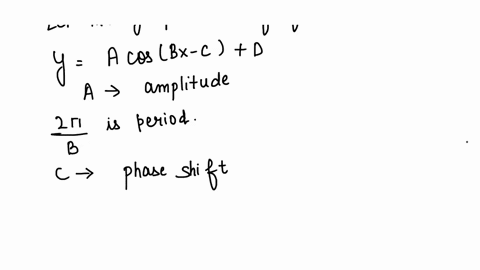 y = A cos(Bx-C) + D
A → amplitude
2π/B is period.
C → phase shift